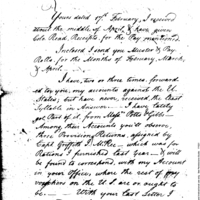 Yours dated 9th February, I received
about the middle of April & have given
Colo Read Receipts for the Pay
Inclosed I send you Muster & Pay
Rolls, for the Months of February, March,
& April.
I have, two or three times forward
ed to you, my accounts against the U.
States, but have never received the least
Syllable in Answer. I have
got Part of it, from Messrs
Among them Accounts you'll observe
three Provision Returns, assigned by
Capt Griffith J. McRee which was for
Rations I furnished last Year I will
be found to correspond with my Account
in your Office, where the rest of my
vouchers on the U S are or ought
to be With your last Letter I